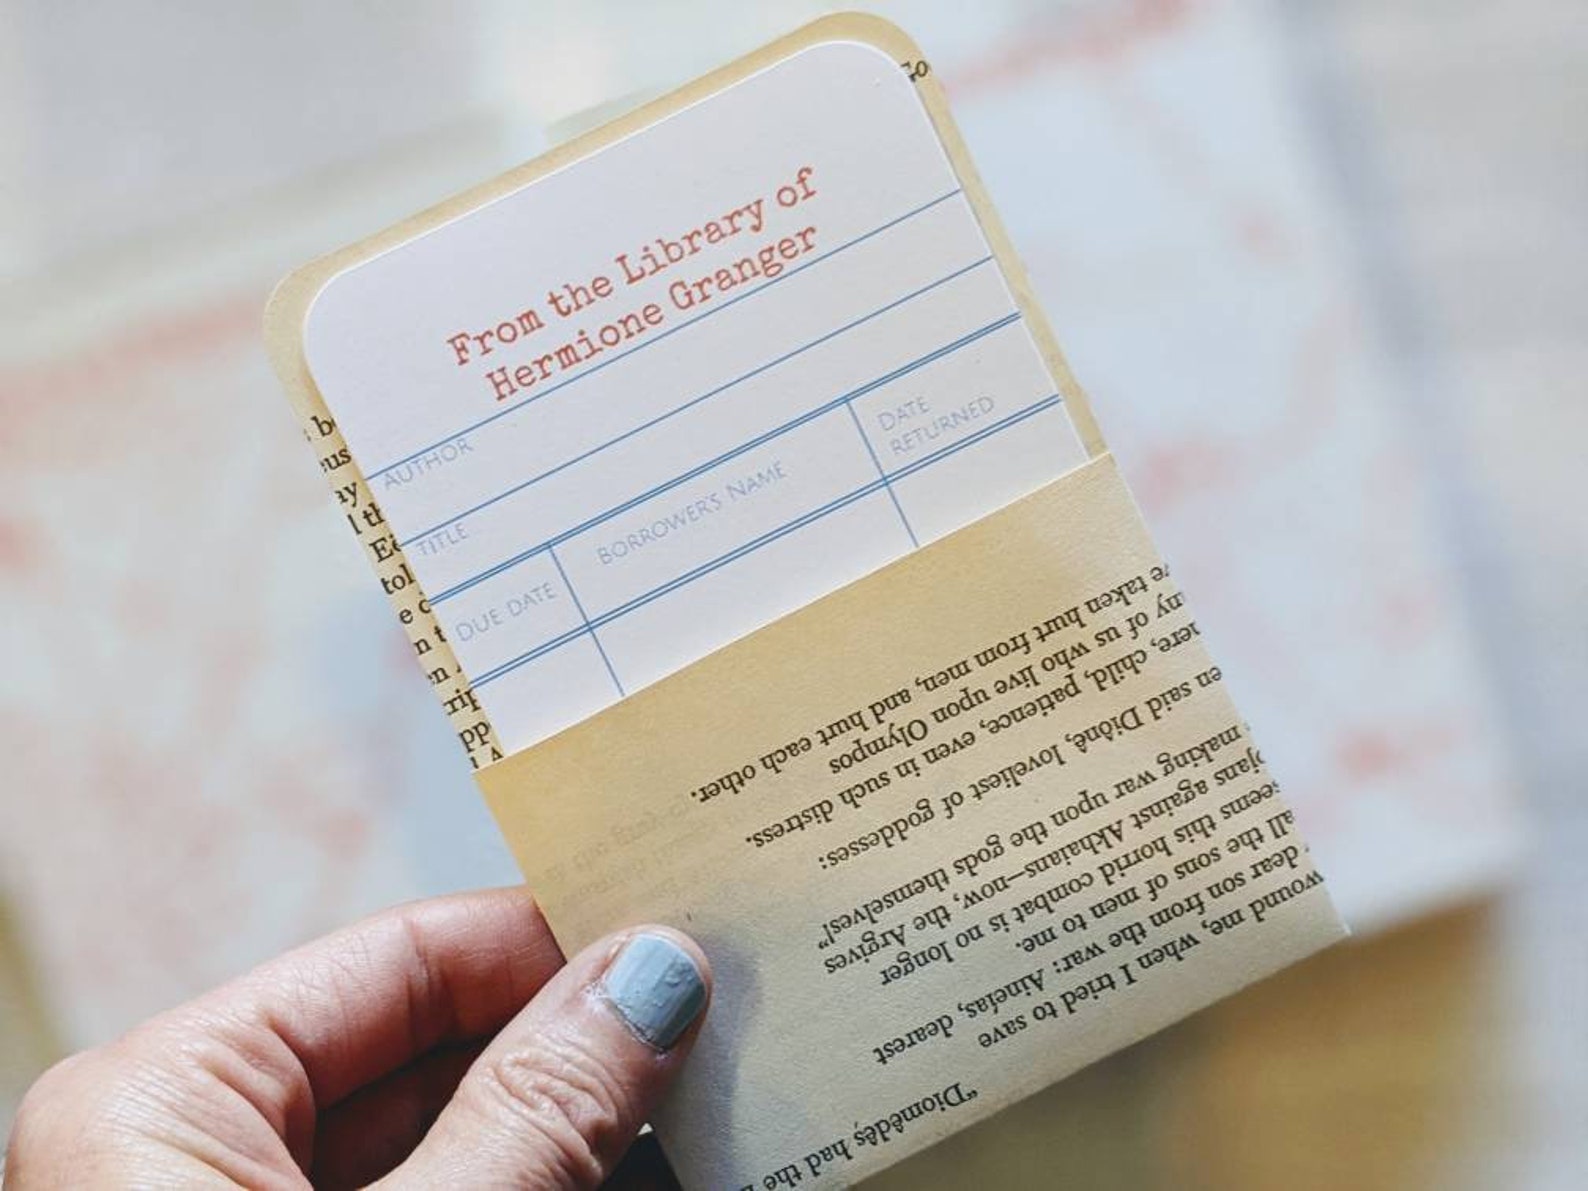 From the Library of
Hermione Granger
AUTHOR
TITLE
DUE DATE
BORROWER'S NAME
DATE
RETURNED
“Diomêdês had the
wound me, when I tried to save
dear son from the war: Aineías, dearest
all the sons of men to me.
seems this horrid combat is no longer
ojans against Akhaians—now, the Argives
making war upon the gods themselves!”
en said Diônê, loveliest of goddesses:
ere, child, patience, even in such distress.
ny of us who live upon Olympos
ve taken hurt from men, and hurt each other.